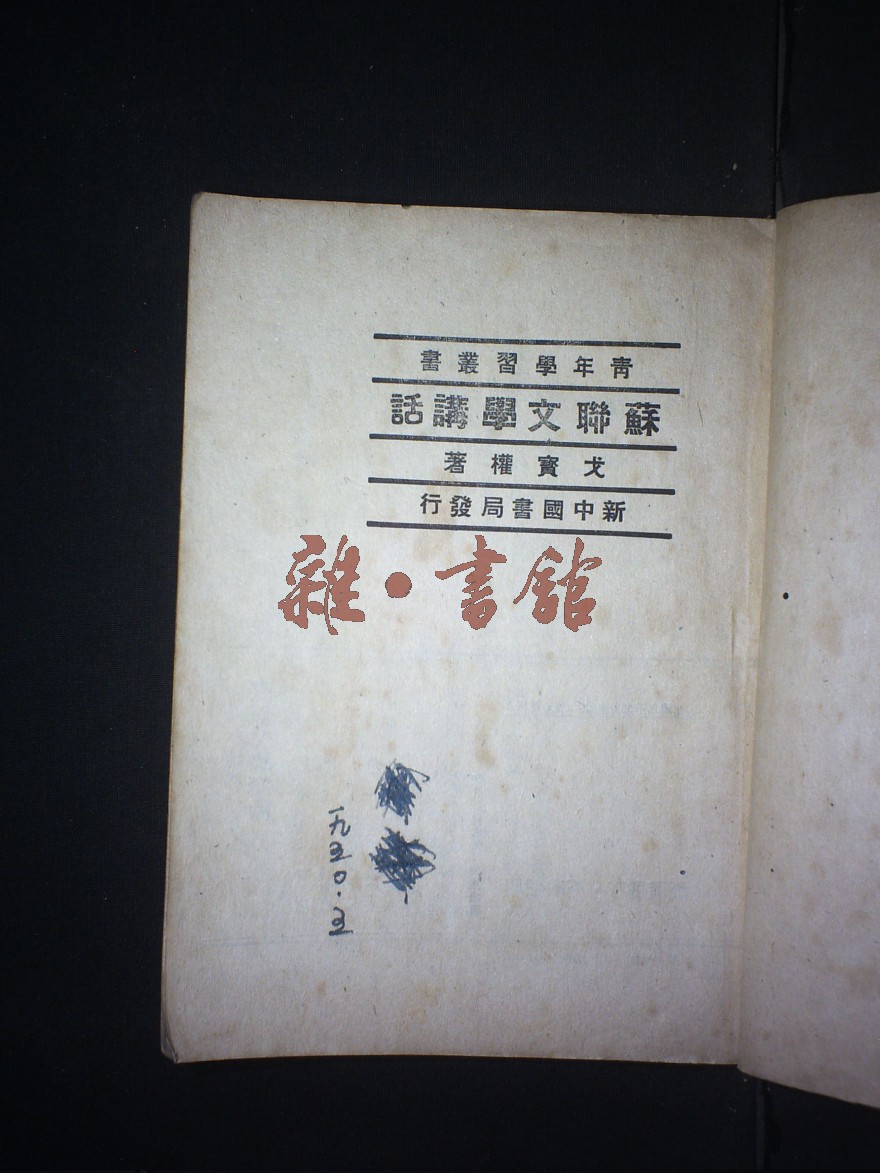 青年學習叢書
蘇聯文學講話
戈寶權著
新中國書局發行
雜·書館
一九五〇.五